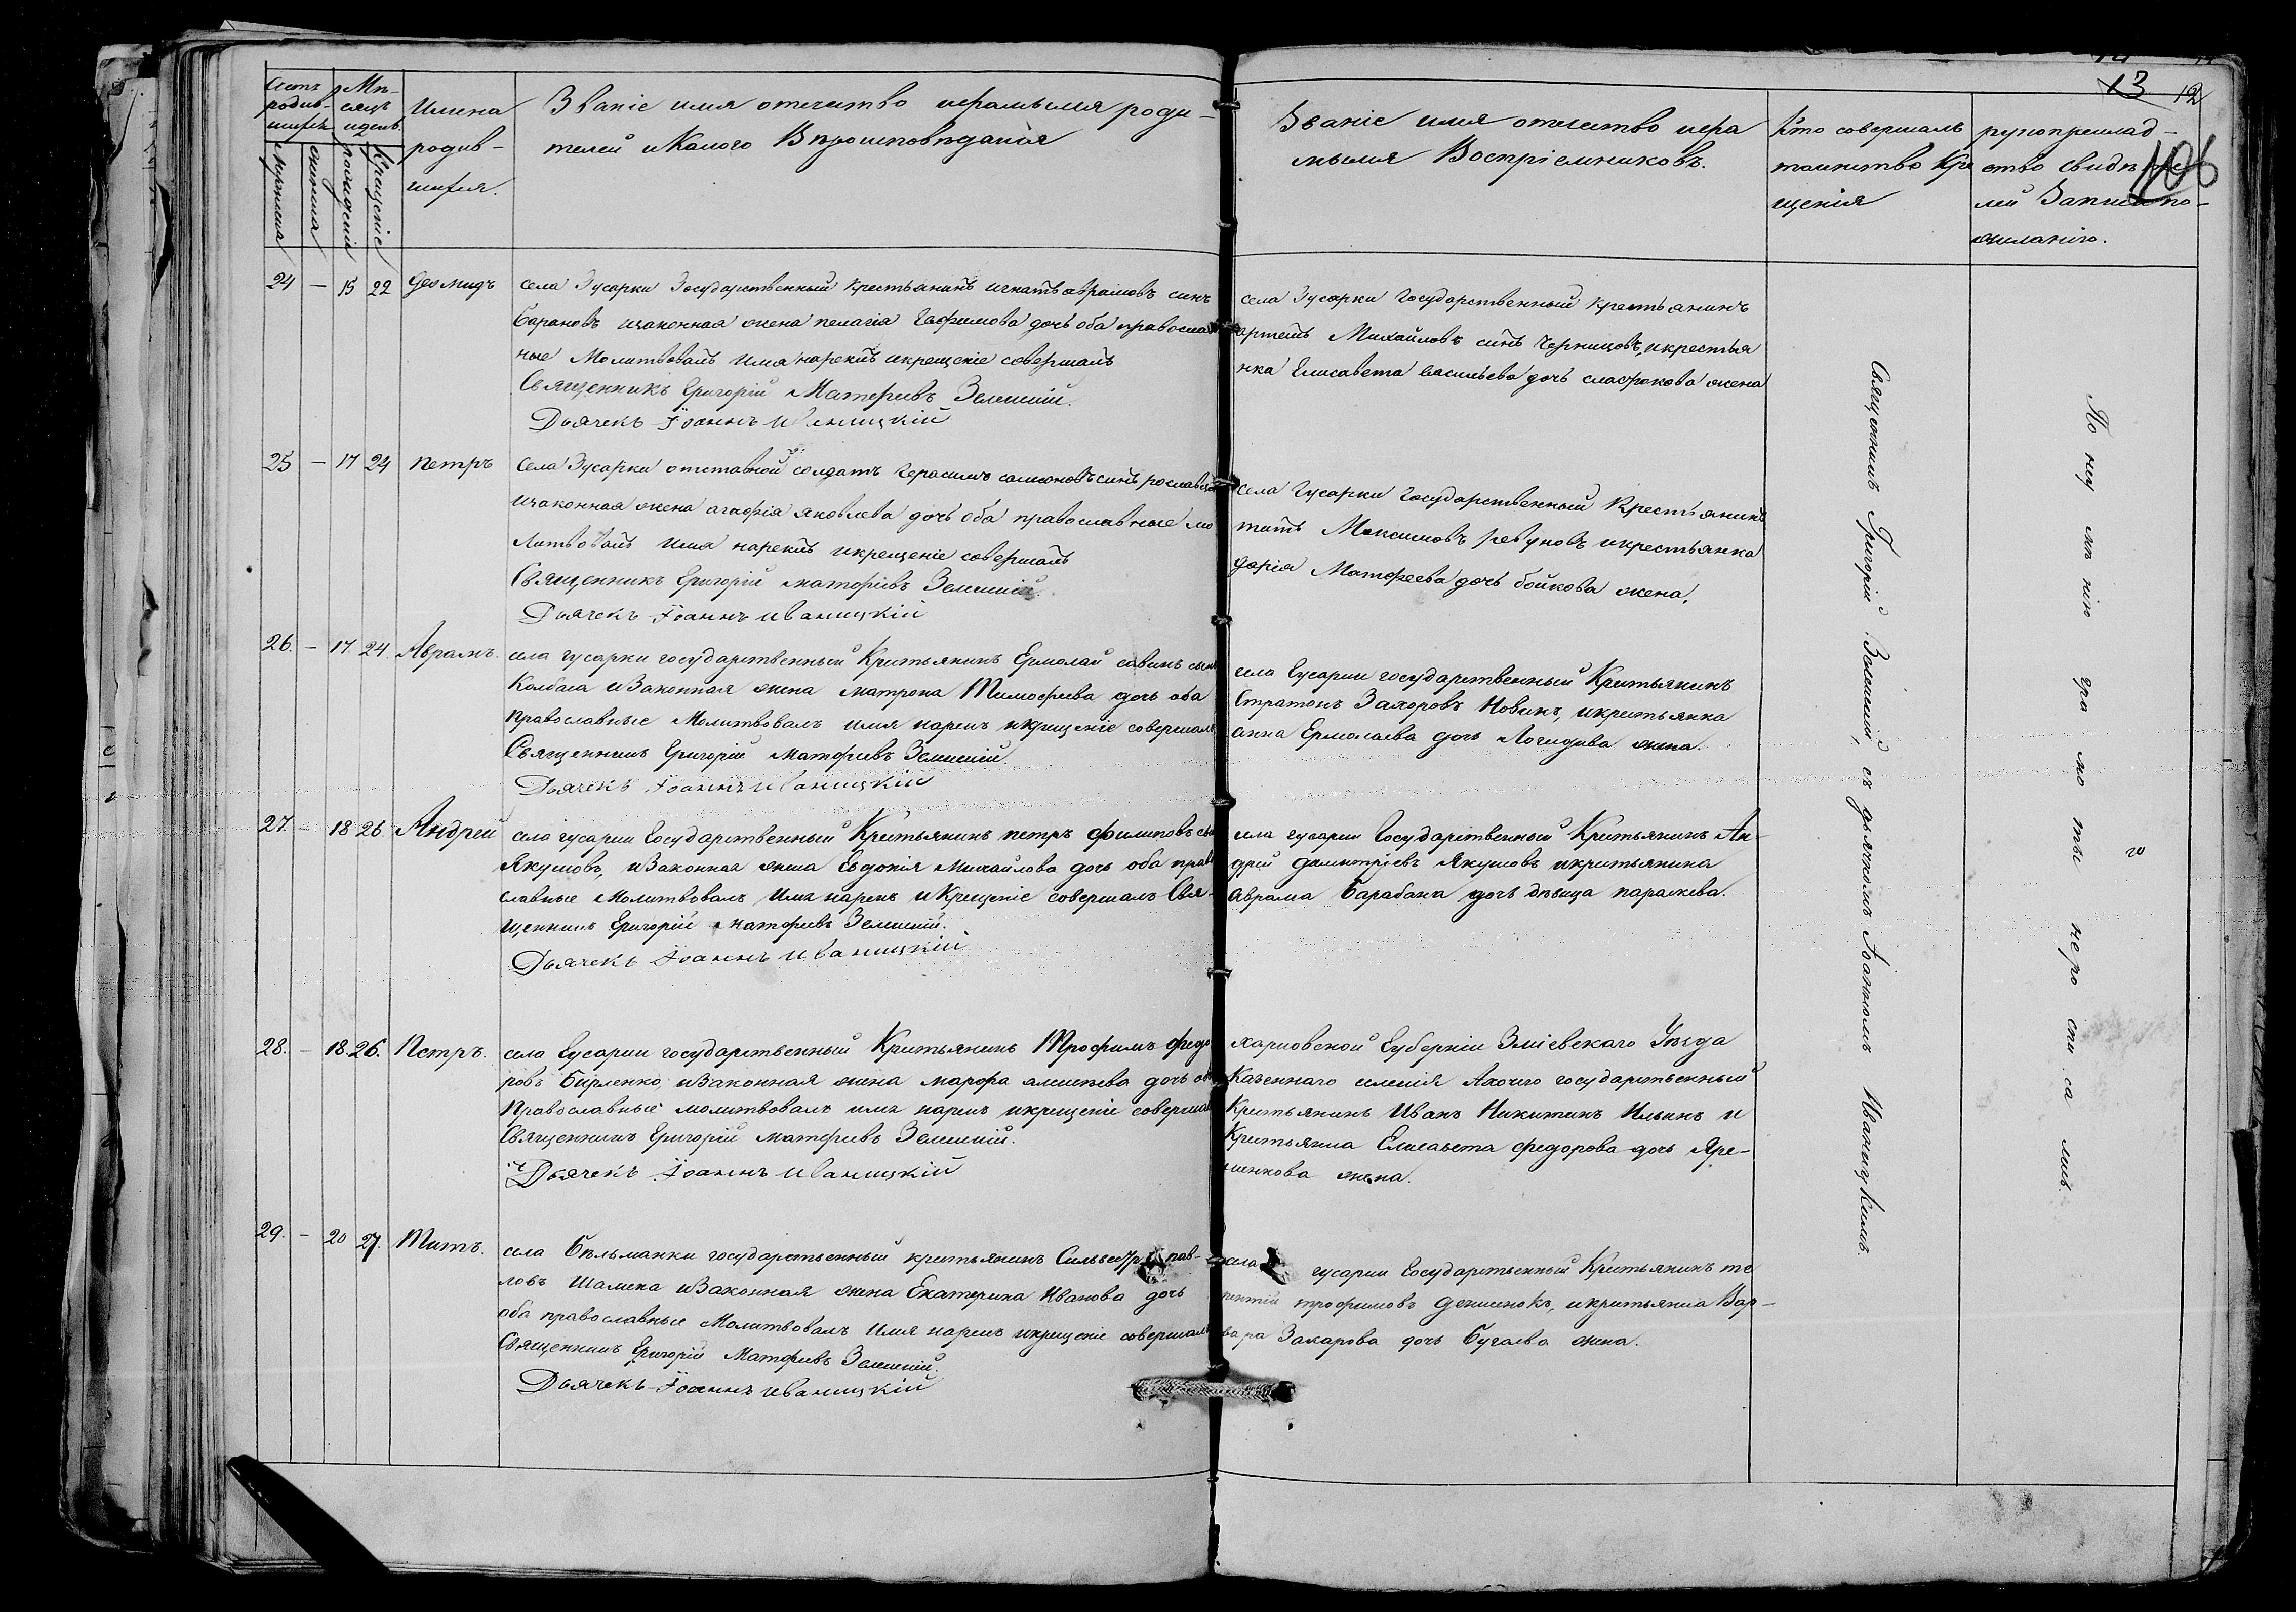 13 12
106
Счетъ родив-шихся
Мѣ-сяцъ и день
мужеска
женска
рожденія
крещеніе
Имена родив-шихся.
Званіе имя отечество и фамилия роди-
телей и Какого Вѣроисповѣданія
Званіе имя отечество и фа
милия Воспріемниковъ.
Кто совершалъ
таинство Кре
щенія
рукоприклад-
ство свидѣте
лей Записи по-
желанію.
24 — 15 22 Деомидъ
села Гусарки Государственный крестьянинъ игнатъ аврамовъ синъ
барановъ изаконная жена пелагія Ефимова дочь оба православ
ные Молитвовалъ Имя нарекъ икрещеніе совершалъ
Священникъ Григорій Матфеевъ Зеленскій.
Дьячекъ Іоаннъ Иваницкій
села Гусарки Государственный крестьянинъ
артемъ Михайловъ синъ Черницовъ, икрестья
нка Елисавета васильева дочь жена
25 — 17 24 петръ
Села Гусарки отставной солдатъ герасимъ синъ
изаконная жена агафія яковлева дочь оба православные мо
литвовалъ Имя нарекъ икрещеніе совершалъ
Священникъ Григорій матфіевъ Зеленскій.
Дьячекъ Іоаннъ иваницкій
села Гусарки Государственный Крестьянинъ
титъ Максимовъ ревуновъ икрестьянка
дарія Матфеева дочь бойкова жена.
26. — 17 24. Аврамъ.
села гусарки государственный Крестьянинъ Ермолай савинъ сынъ
Колбаса иЗаконная жена матрона Тимофеева дочь оба
Православные Молитвовалъ имя нарекъ икрещеніе совершалъ
Священникъ Григорій Матфеевъ Зеленскій.
Дьячекъ Іоаннъ иваницкій
села Гусарки государственный Крестьянинъ
Стратонъ Захаровъ Новикъ, икрестьянка
анна Ермолаева дочь жена.
27. — 18 26. Андрей
села гусарки Государственный Крестьянинъ петръ филиповъ сынъ
Якушовъ, иЗаконная жена Евдокія Михайлова дочь оба право
славные Молитвовалъ Имя нарекъ и Крещеніе совершалъ Свя-
щенникъ Григорій Матфеевъ Зеленскій.
Дьячекъ Іоаннъ Иваницкій
села гусарки Государственный Крестьянинъ Ан-
дрей дмитріевъ Якушовъ икрестьянина
аврама барабаха дочь дѣвица параскева.
28. — 18. 26. Петръ.
села Гусарки государственный Крестьянинъ Трофимъ федо
ровъ Бирленко, иЗаконная жена марфа алексѣева дочь оба
Православные молитвовалъ имя нарекъ икрещеніе совершалъ
Священникъ Григорій матфеевъ Зеленскій.
Дьячекъ Іоаннъ Иваницкій
харковской Губерніи Зміевскаго Уѣзда
Казеннаго селенія государственный
Крестьянинъ Иванъ Никитинъ Ильинъ и
Крестьянка Елисавета федорова дочь Яре-
менкова жена.
29. — 20 27. Титъ.
села Бѣльманки государственный крестьянинъ Сильвестръ пав-
ловъ Шамека иЗаконная жена Екатерина Иванова дочь
оба православные Молитвовалъ Имя нарекъ икрещеніе совершалъ
Священникъ Григорій Матфеевъ Зеленскій.
Дьячекъ Іоаннъ иваницкій
села гусарки Государственный Крестьянинъ те
рентій трофимовъ икрестьянка Вар-
вара Захарова дочь бугаева жена.
Священникъ Григорій Зеленскій, съ дьячкомъ Іоанномъ Иваницкимъ.
По неу мѣ нію гра мо ты не ро спи са лись.